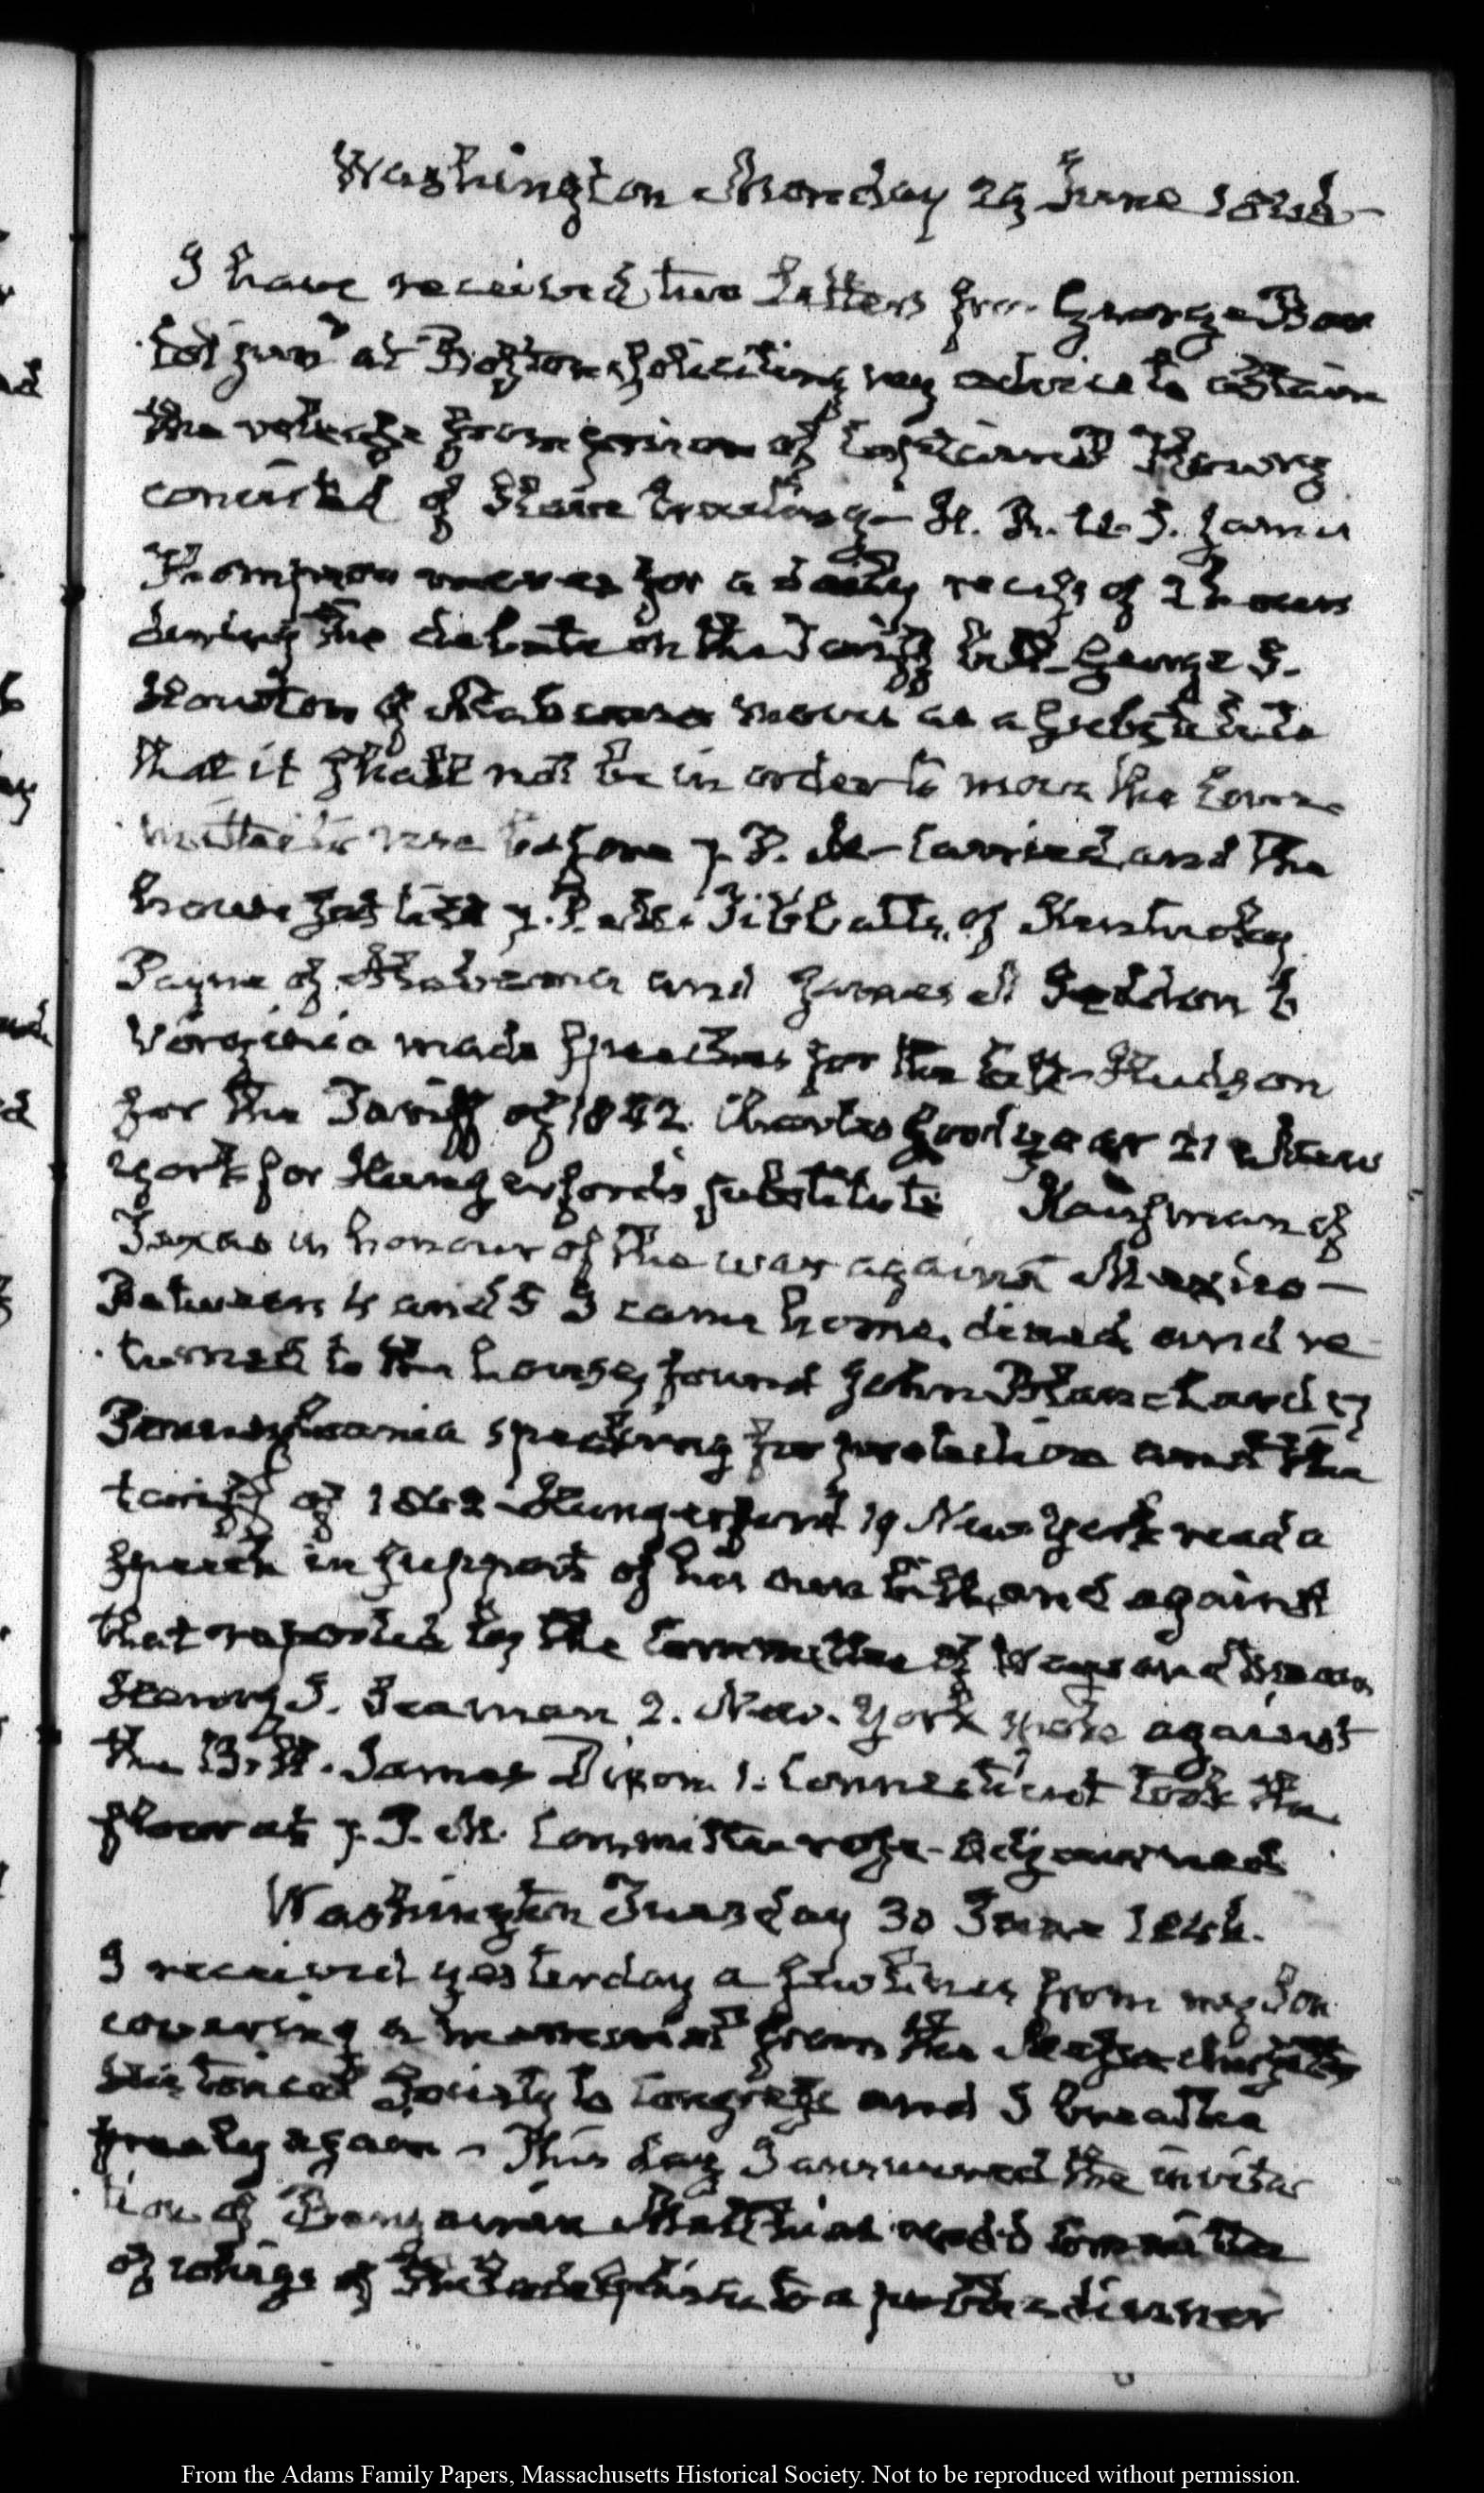 Washington Monday 29 June 1846-
I have received two Letters from George
at Boston soliciting my advice to obtain
the release from prison of Captain
convicted of Slave trading- H. R. U. S. James
Thompson moves for a daily recess of 2 hours
during the debate on the Tariff bill- George S.
Houston of Alabama moves as a substitute
that it shall not be in order to move the Com-
mittee to rise before 7. P. M- Carried, and the
house sat till 7. P. M. Tibbatts, of Kentucky
Payne of Alabama and James A Seddon 6
Virginia made speeches for the bill- Hudson
for the Tariff of 1842. Charles Goodyear 21 New
York for Hungerford's substitute Kaufman of
Texas in honour of the war against Mexico-
Between 4 and 5 I came home, dined and re-
turned to the house, found John Blanchard 17
Pennsylvania speaking for protection and the
tariff of 1842- Hungerford 19 New York read a
speech in support of his own bill, and against
that reported by the Committee of Ways and Means
Henry I. Seaman 2. New-York spoke against
the Bill. James Dixon 1. Connecticut took the
floor at 7. P. M. Committee rose- Adjourned
Washington Tuesday 30 June 1846.
I received yesterday a few lines from my Son
covering a memorial from the Massachusetts
Historical Society to Congress and I breathe
freely again- This day I answered the invita-
tion of Benjamin Matthias and Committee
of whigs of Philadelphia to a public dinner